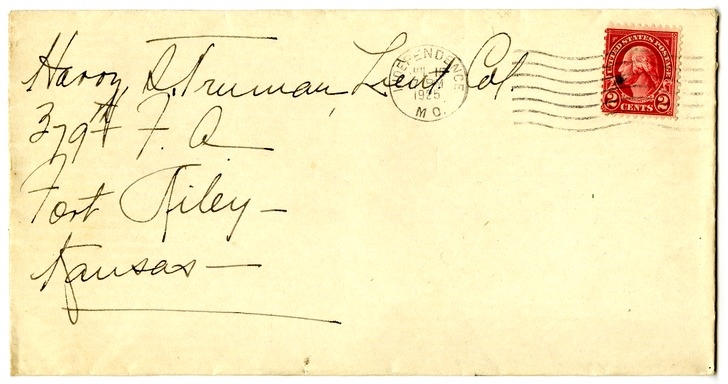 Harry S. Truman Lieut Col.
379th F. A
Fort Riley —
Kansas —
INDEPENDENCE
1925
MO.
UNITED STATES POSTAGE
2 CENTS 2